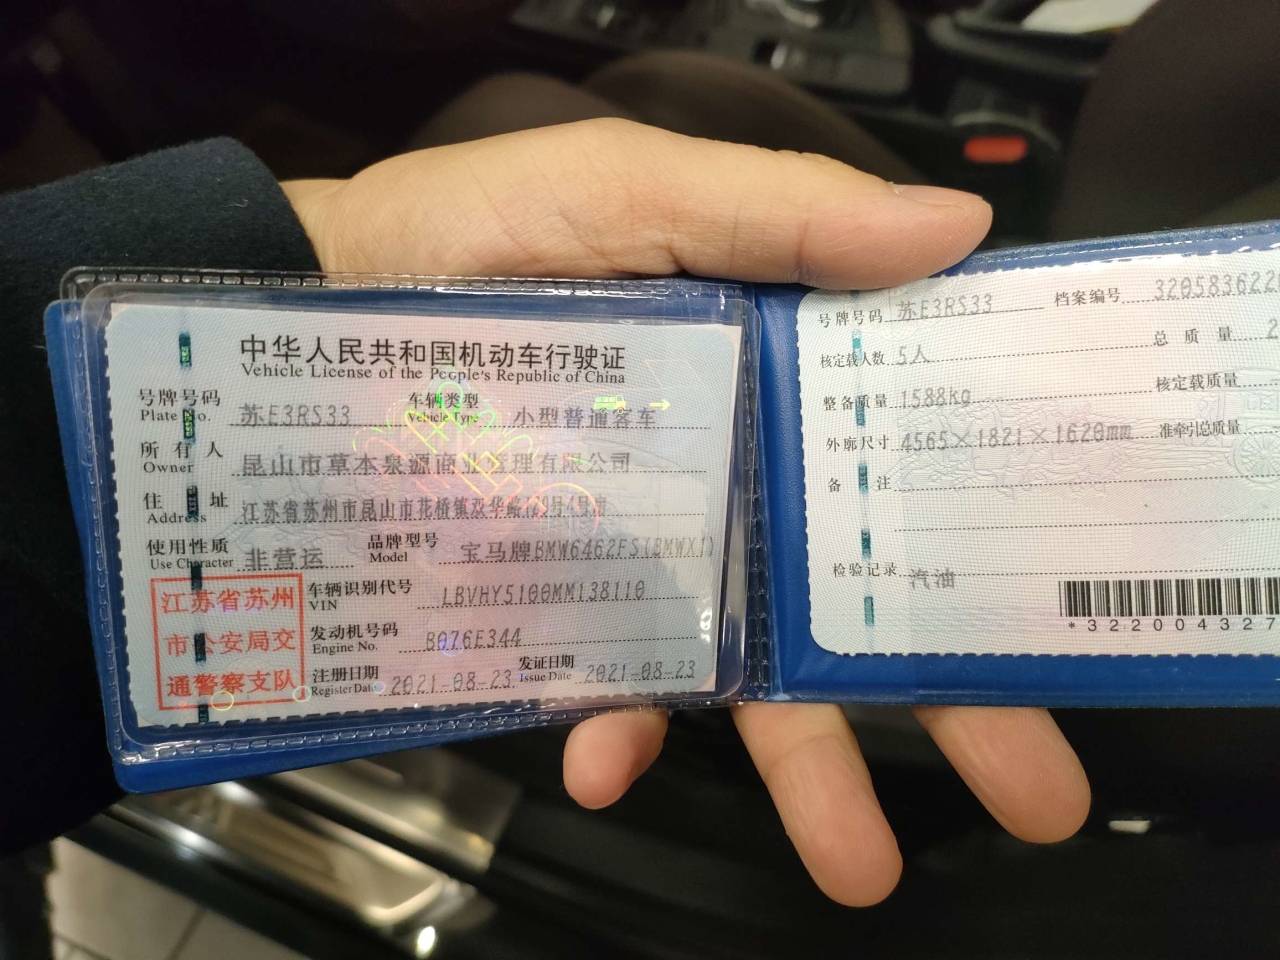 中华人民共和国机动车行驶证
Vehicle License of the People's Republic of China
号牌号码 Plate No. 苏E3RS33 车辆类型 Vehicle Type 小型普通客车
所有人 Owner 昆山市草本泉源商业管理有限公司
住址 Address 江苏省苏州市昆山市花桥镇双华路
使用性质 Use Character 非营运 品牌型号 Model 宝马牌BMW6462FS(BMWX1)
江苏省苏州
市公安局交
通警察支队
车辆识别代号 VIN LBVHY5100MM138110
发动机号码 Engine No. B076E344
注册日期 Register Date 2021-08-23 发证日期 Issue Date 2021-08-23
号牌号码 苏E3RS33 档案编号 320583622
核定载人数 5人 总质量 2
整备质量 1588kg 核定载质量
外廓尺寸 4565×1821×1620mm 准牵引总质量
备注
检验记录 汽油
*322004327